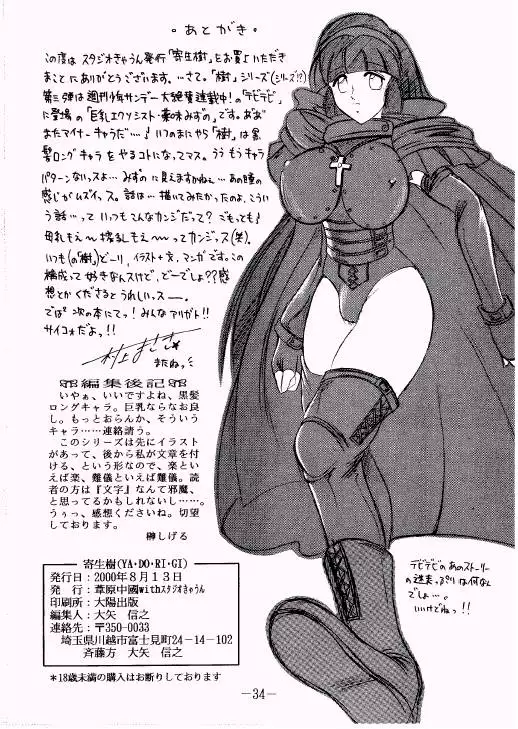 ・あとがき・
この度は スタジオきゃうん発行「寄生樹」をお買上いただき
まことにありがとうございます。…さて。「樹」シリーズ(シリーズ!?)
第三弾は週刊少年サンデー大絶賛連載中!の「デビデビ」
に登場の「巨乳エクソシスト・薬味みずの」です。ああ
またマイナーキャラだ…♪いつのまにやら「樹」は黒
髪ロングキャラをやるコトになってマス。うう もうキャラ
パターンないっスよ…みずの に見えますかねぇ…あの瞳の
感じがムズイっス。話は…描いてみたかったのよ、こういう
話…って いつもこんなカンジだって?ごもっとも♪
母乳もえ〜搾乳もえ〜ってカンジっス(笑)。
いつも(の「樹」)どーり、イラスト+文、マンガです。この
構成って好きなんスけど、どーでしょ??感
想とかくださるとうれしいっス──。
では次の本にて!みんなアリガト!!
サイコォだよっ!!
またねっ
編集後記
いやぁ、いいですよね、黒髪
ロングキャラ。巨乳ならなお良
し。もっとおらんか、そういう
キャラ……連絡請う。
このシリーズは先にイラスト
があって、後から私が文章を付
ける、という形なので、楽とい
えば楽、難儀といえば難儀。読
者の方は『文字』なんて邪魔、
と思ってるかもしれないし……。
うぅっ、感想くださいね。切望
しております。
榊しげる
寄生樹(YA・DO・RI・GI)
発行日:2000年8月13日
発行:葦原中國withスタジオきゃうん
印刷所:大陽出版
編集人:大矢 信之
連絡先:〒350-0033
埼玉県川越市富士見町24-14-102
斉藤方 大矢 信之
*18歳未満の購入はお断りしております
デビデビのあのストーリー
の迷走っぷりは何なん
でしょ…。
いいけどねっ!!
—34—